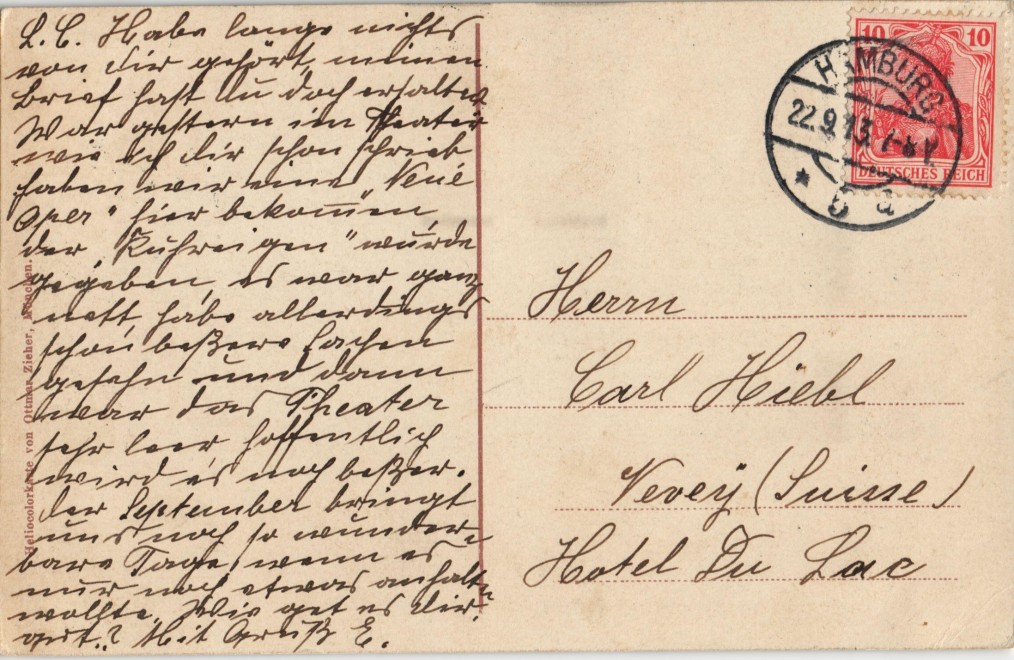 L. C. Habe lange nichts
von dir gehört, meinen
Brief hast du doch erhalten.
War gestern im Theater
wie ich dir schon schrieb
haben wir eine „Neue
Oper“ hier bekommen,
der „Kuhreigen“ wurde
gegeben, es war ganz
nett, habe allerdings
schon beßere Sachen
gesehn und dann
war das Theater
sehr leer, hoffentlich
wird es noch beßer.
der September bringt
uns noch so wunder-
bare Tage, wenn es
nur noch etwas anhalten
wollte. Wie get es dir,
gut.? Mit Gruß E.
Heliocolorkarte von Ottmar Zieher, München.
10 10
DEUTSCHES REICH
HAMBURG
22.9.13. 7-8 V.
* 5 a
Herrn
Carl Hiebl
Vevey (Suisse)
Hotel Du Lac